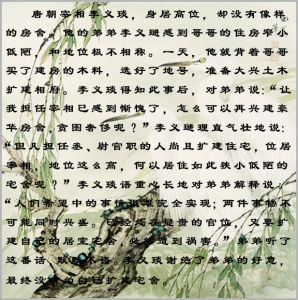 唐朝宰相李义琰，身居高位，却没有像样
的房舍，他的弟弟李义琎感到哥哥的住房窄小
低陋，和地位极不相称。一天，他就背着哥哥
买了建房的木料，选好了地号，准备大兴土木
扩建相府。李义琰得知此事后，对弟弟说：“让
我担任宰相已感到惭愧了，怎么可以再兴建豪
华房舍，贪图奢侈呢？”李义琎理直气壮地说：
“但凡担任丞、尉官职的人尚且扩建住宅，位居
宰相，地位这么高，何以居住如此狭小低陋的
宅舍呢？”李义琰语重心长地对弟弟解释说，
“人们希望中的事情很难完全实现；两件事物不
可能同时兴盛。已经处在显贵的官位，又要扩
建自己的居室宅舍，必将遭到祸害。”弟弟听了
这番话，默默不语。李义琰谢绝了弟弟的好意，
最终没有为自己扩建宅舍。